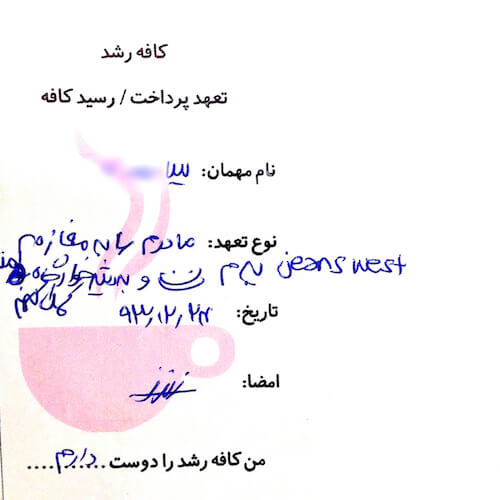 کافه رشد
تعهد پرداخت / رسید کافه
نام مهمان:
نوع تعهد: مادرم را به مغازه
jeans west ببرم و به
کمک کنم
تاریخ: ۹۳,۱۲,۲۴
امضا:
من کافه رشد را دوست ......دارم....